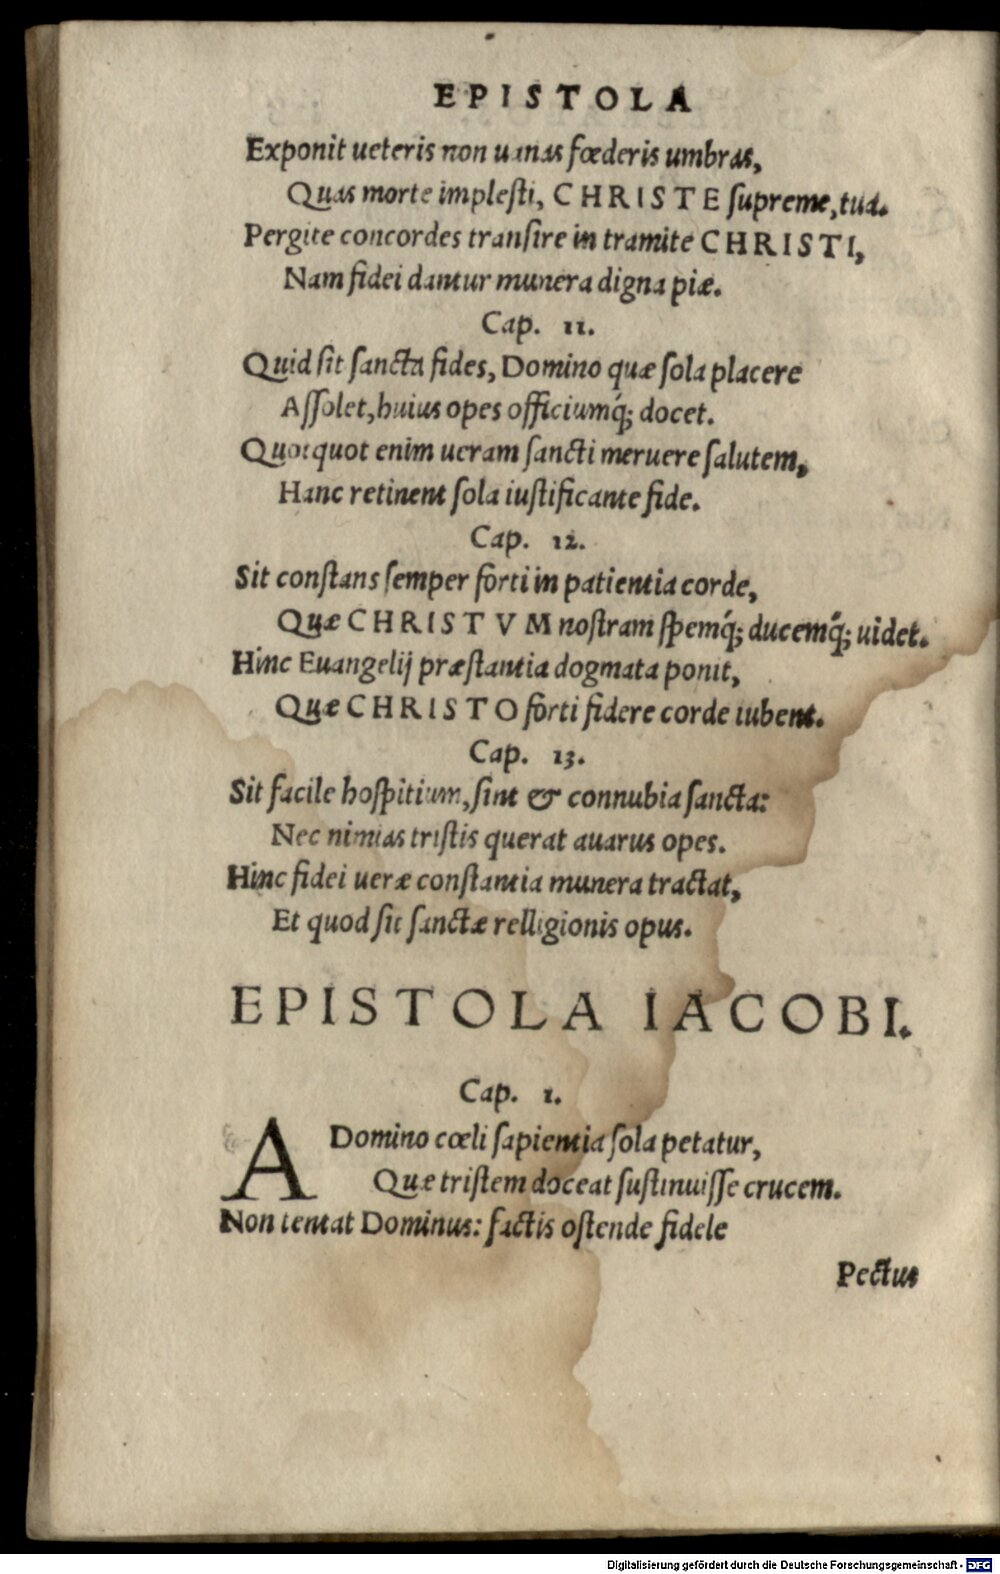 EPISTOLA
Exponit ueteris non uanas fœderis umbras,
Quas morte implesti, CHRISTE supreme, tua.
Pergite concordes transire in tramite CHRISTI,
Nam fidei dantur munera digna piæ.
Cap. 11.
Quid sit sancta fides, Domino quæ sola placere
Assolet, huius opes officiumq́; docet.
Quotquot enim ueram sancti meruere salutem,
Hanc retinent sola iustificante fide.
Cap. 12.
Sit constans semper forti in patientia corde,
Quæ CHRISTVM nostram spemq́; ducemq́; uidet.
Hinc Euangelij præstantia dogmata ponit,
Quæ CHRISTO forti fidere corde iubent.
Cap. 13.
Sit facile hospitium, sint & connubia sancta:
Nec nimias tristis querat auarus opes.
Hinc fidei ueræ constantia munera tractat,
Et quod sit sanctæ relligionis opus.
EPISTOLA IACOBI.
Cap. 1.
A Domino cœli sapientia sola petatur,
Quæ tristem doceat sustinuisse crucem.
Non tentat Dominus: factis ostende fidele
Pectus
Digitalisierung gefördert durch die Deutsche Forschungsgemeinschaft - DFG